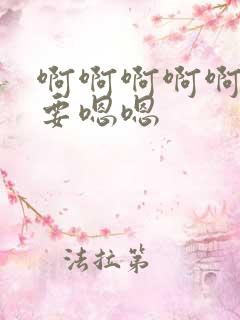 啊啊啊啊啊
要嗯嗯
法拉第